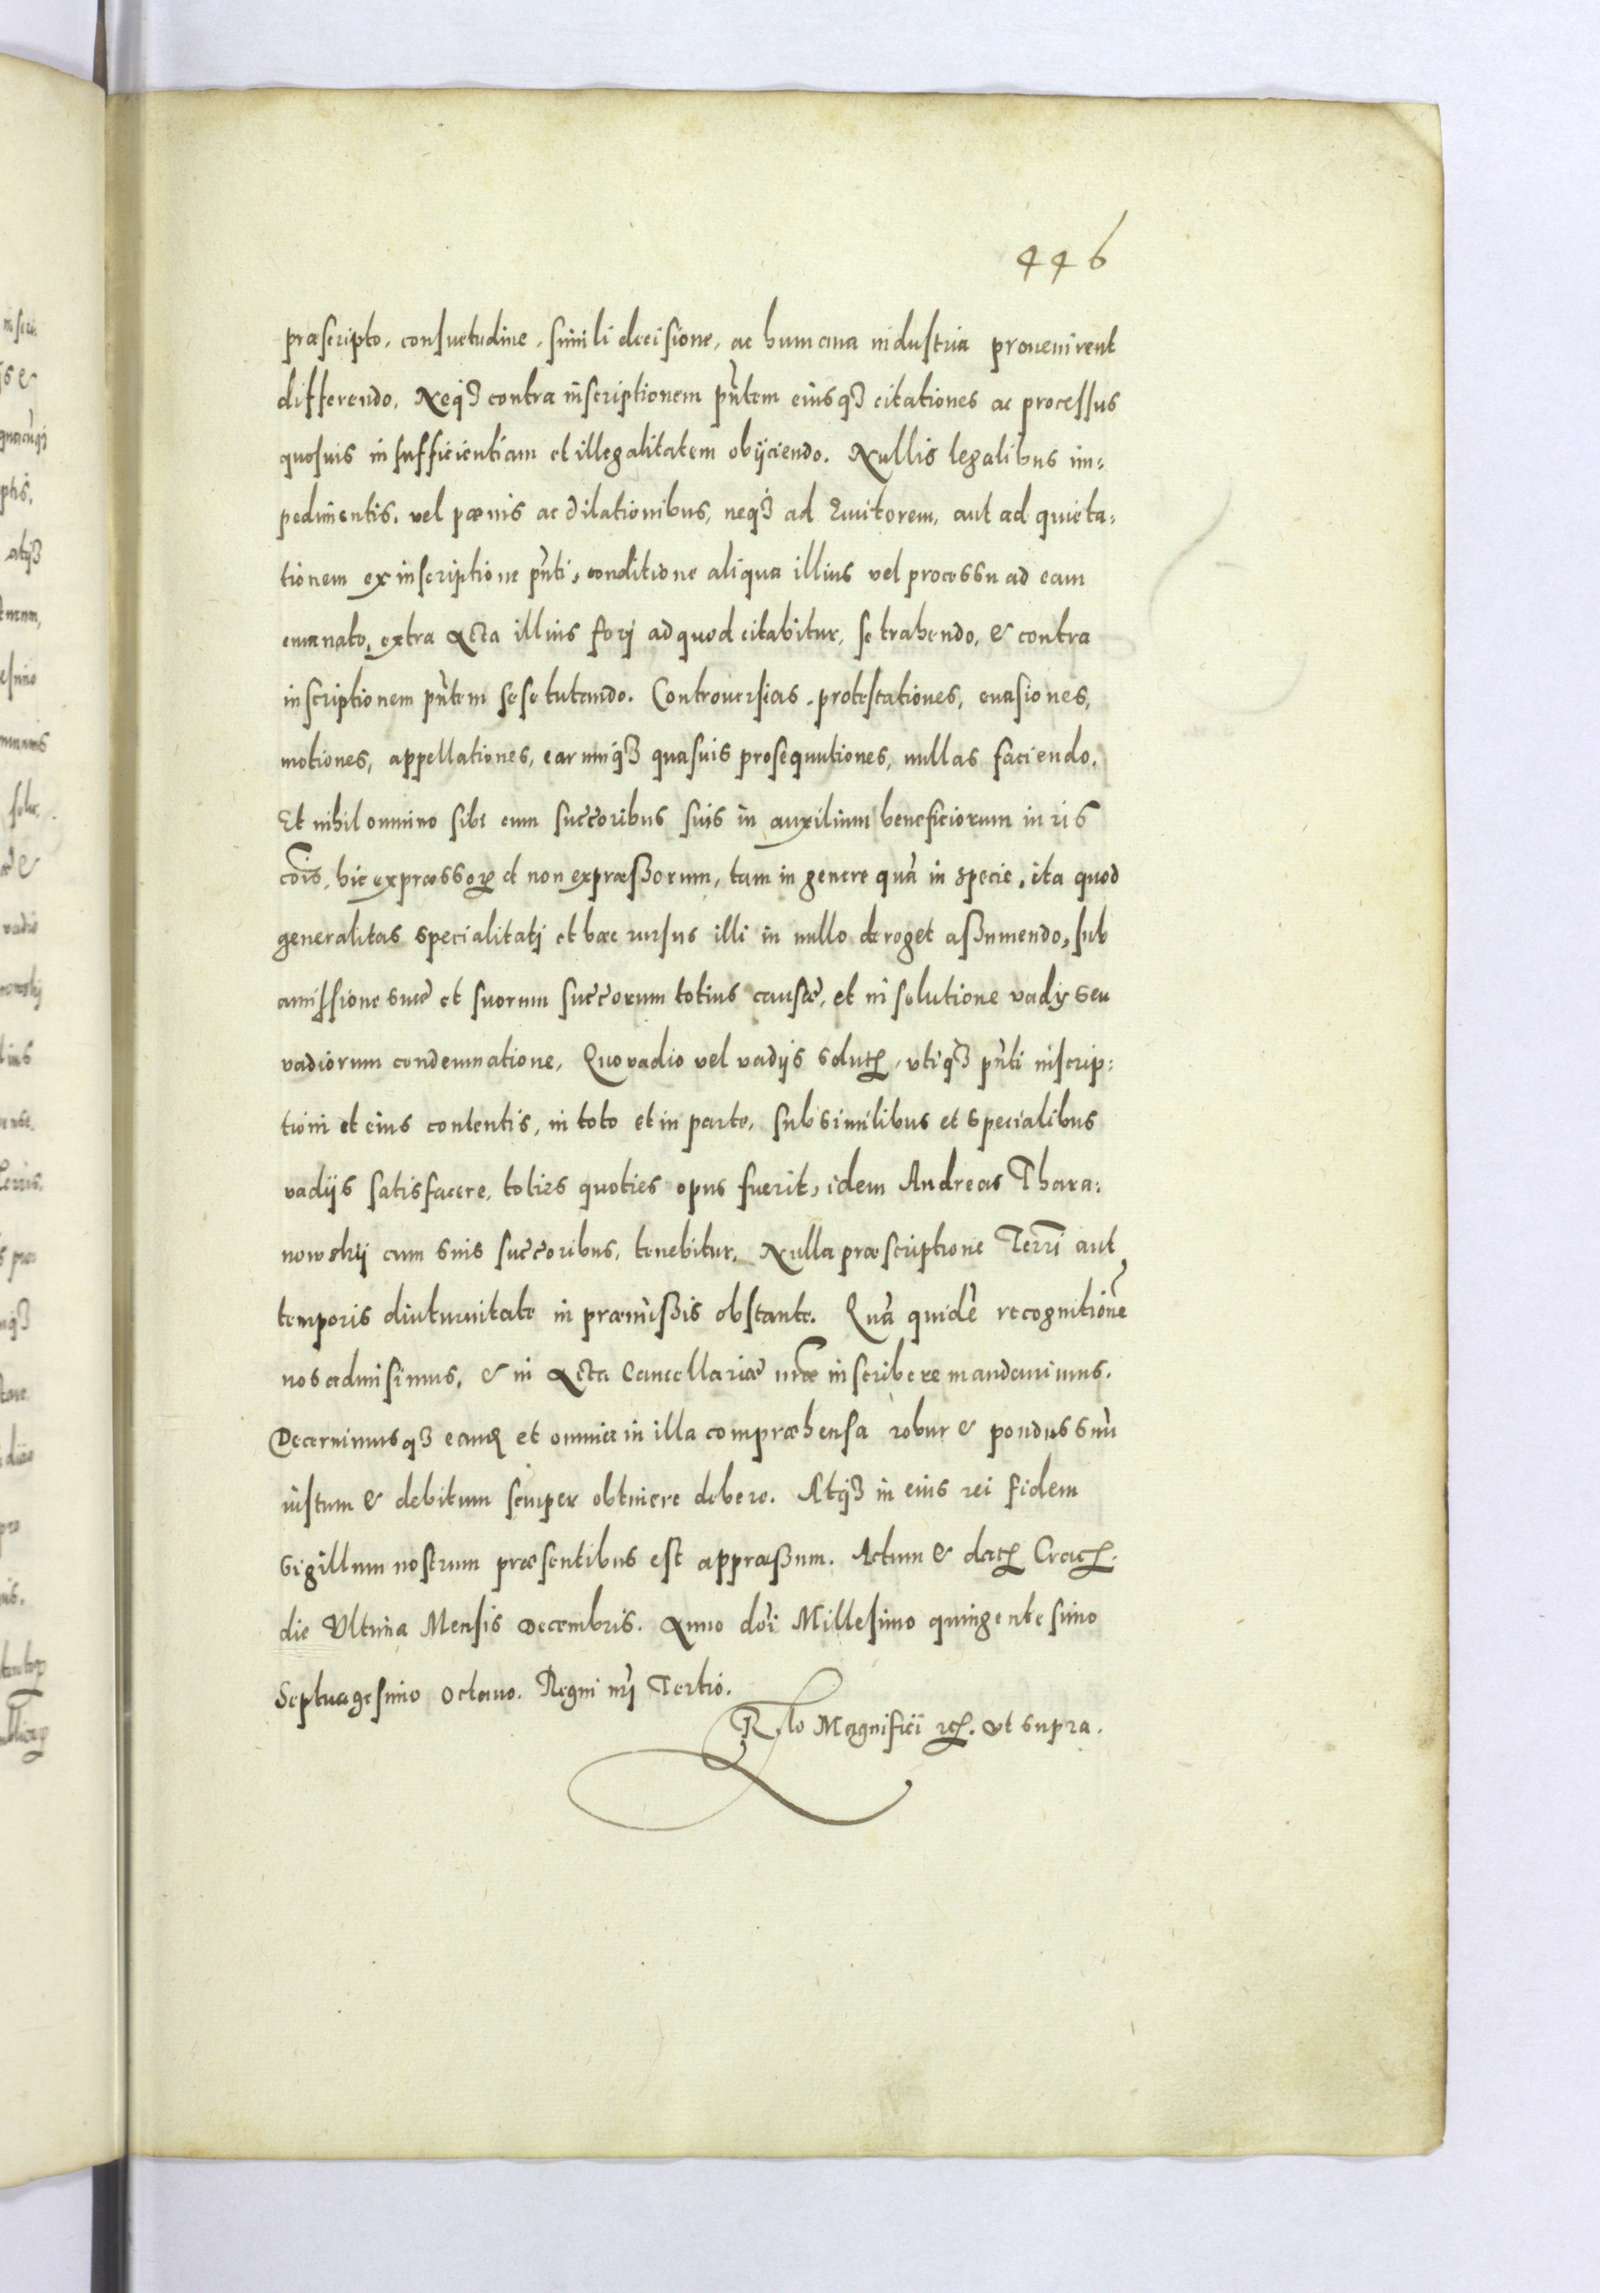 446
præscripto, consuetudine, simili decisione, ac humana industria prouenirent
differendo. Neqȝ contra inscriptionem pñtem eiusqȝ citationes ac processus
quosuis insufficientiam et illegalitatem obijciendo. Nullis legalibus im=
pedimentis, vel pœnis ac dilationibus, neqȝ ad Euitorem, aut ad quieta=
tionem ex inscriptione pñti, conditione aliqua illius vel processu ad eam
emanato, extra Acta illius forj ad quod citabitur, se trahendo, & contra
inscriptionem pñtem sese tutando. Controuersias, protestationes, euasiones,
motiones, appellationes, earumqȝ quasuis prosequutiones, nullas faciendo.
Et nihil omnino sibi cum succoribus suis in auxilium beneficiorum iuris
cõis, hic expressoꝝ et non expræßorum, tam in genere quã in specie, ita quod
generalitas specialitatj et hæc rursus illi in nullo deroget aßumendo, sub
amissione suæ et suorum succorum totius causæ, et in solutione vadÿ seu
vadiorum condemnatione. Quo vadio vel vadijs soluꝭ, vtiqȝ pñti inscrip=
tioni et eius contentis, in toto et in parte, sub similibus et specialibus
vadijs satisfacere, toties quoties opus fuerit, idem Andreas Thara=
nowskij cum suis succoribus, tenebitur. Nulla præscriptione Terrĩ aut
temporis diuturnitate in præmißis obstante. Quã quidẽ recognitionẽ
nos admisimus, & in Acta Cancellariæ nræ inscribere mandauimus.
Decernimusqȝ eam et omnia in illa compræhensa robur & pondus suũ
iustum & debitum semper obtinere debere. Atqȝ in eius rei fidem
Sigillum nostrum præsentibus est appræßum. Actum & datꝭ Cracꝭ.
die Vltima Mensis Decembris. Anno dñi Millesimo quingentesimo
Septuagesimo octauo. Regni nrj Tertio.
Rlo Magnificĩ ꝛcꝭ. vt supra.